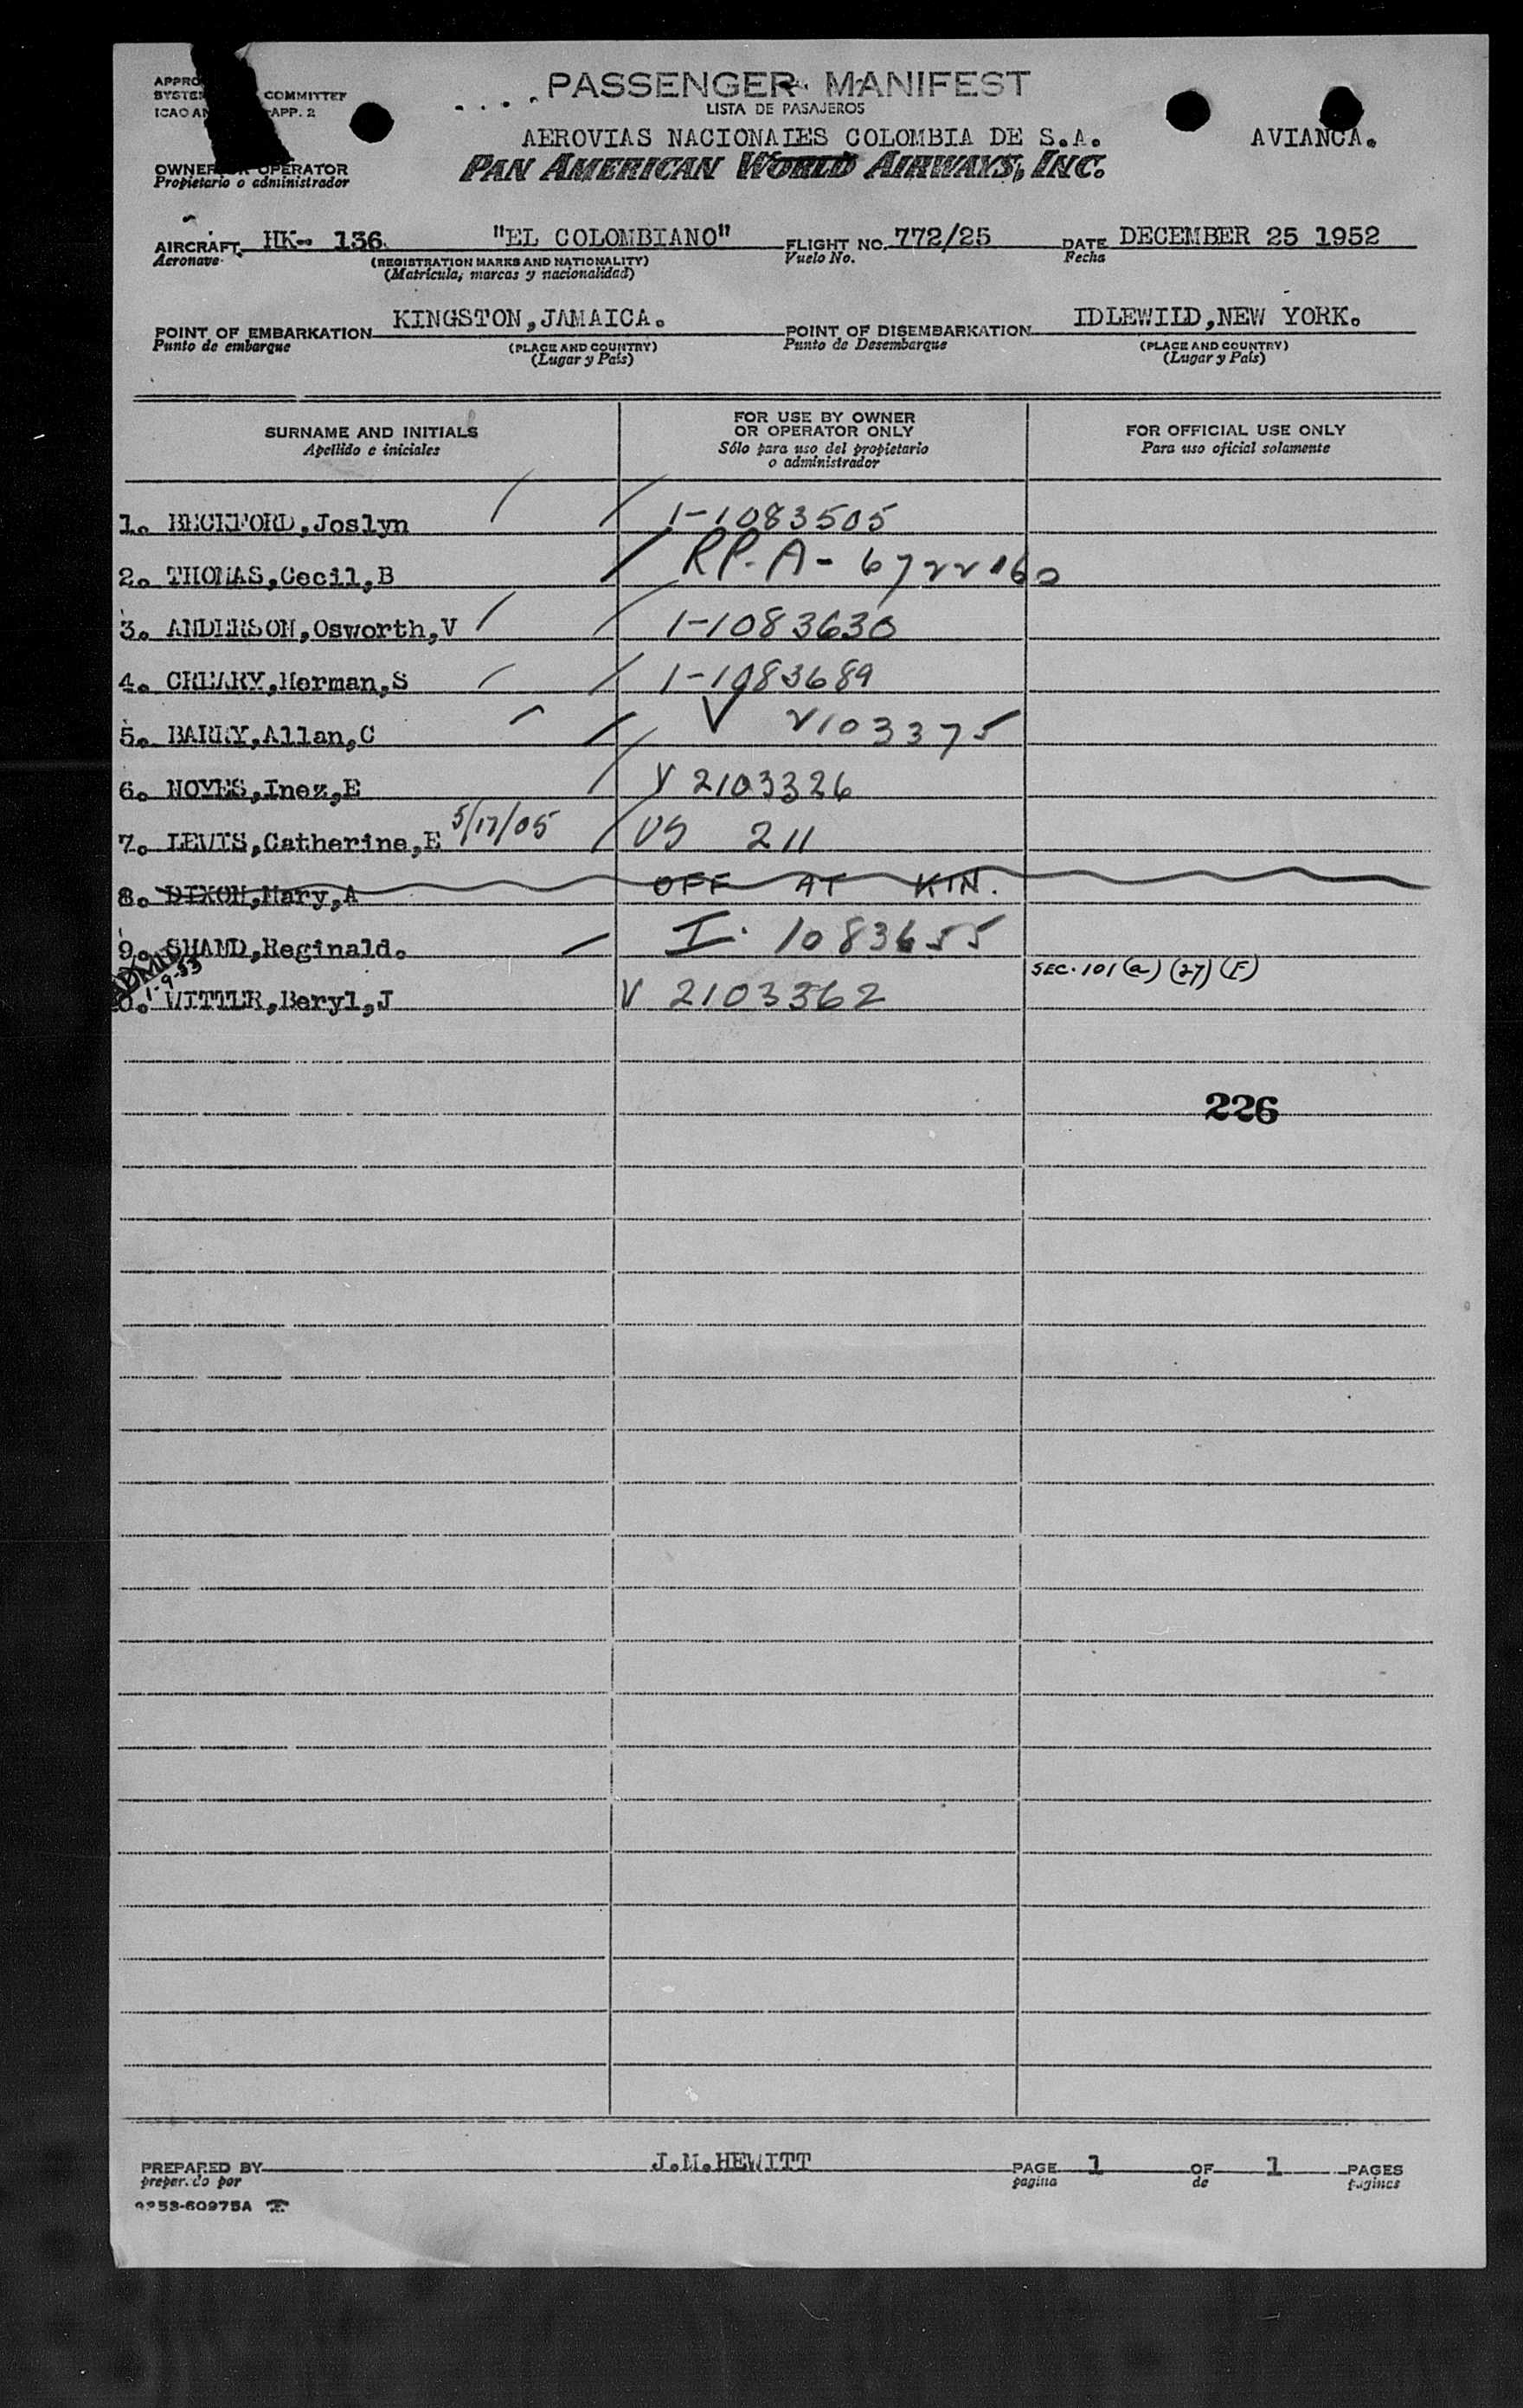 PASSENGER MANIFEST
LISTA DE PASAJEROS
COMMITTEE
ICAO APP. 2
AEROVIAS NACIONALES COLOMBIA DE S.A. AVIANCA.
PAN AMERICAN WORLD AIRWAYS, INC.
OWNER OPERATOR
Propietario o administrador
AIRCRAFT HK- 136. "EL COLOMBIANO" FLIGHT NO. 772/25 DATE DECEMBER 25 1952
Aeronave (REGISTRATION MARKS AND NATIONALITY) Vuelo No. Fecha
(Matrícula, marcas y nacionalidad)
POINT OF EMBARKATION KINGSTON,JAMAICA. POINT OF DISEMBARKATION IDLEWILD,NEW YORK.
Punto de embarque (PLACE AND COUNTRY) Punto de Desembarque (PLACE AND COUNTRY)
(Lugar y País) (Lugar y País)
SURNAME AND INITIALS
Apellido e iniciales
FOR USE BY OWNER
OR OPERATOR ONLY
Sólo para uso del propietario
o administrador
FOR OFFICIAL USE ONLY
Para uso oficial solamente
1. BECKFORD,Joslyn 1-1083505
2. THOMAS,Cecil,B RP. A- 6722160
3. ANDERSON,Osworth,V 1-1083630
4. CREARY,Herman,S 1-1083689
5. BARRY,Allan,C V 2103375
6. NOYES,Inez,E V 2103326
7. LEWIS,Catherine,E 5/17/05 US 211
8. DIXON,Mary,A OFF AT KIN.
9. SHAND,Reginald. I. 1083655
1-9-53
0. WITTER,Beryl,J V 2103362 SEC. 101 (a) (27) (F)
226
PREPARED BY J.M.HEWITT PAGE 1 OF 1 PAGES
pagina de